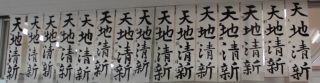 天地清新
天地清新
天地清新
天地清新
天地清新
天地清新
天地清新
天地清新
天地清新
天地清新
天地清新
天地清新
天地清新